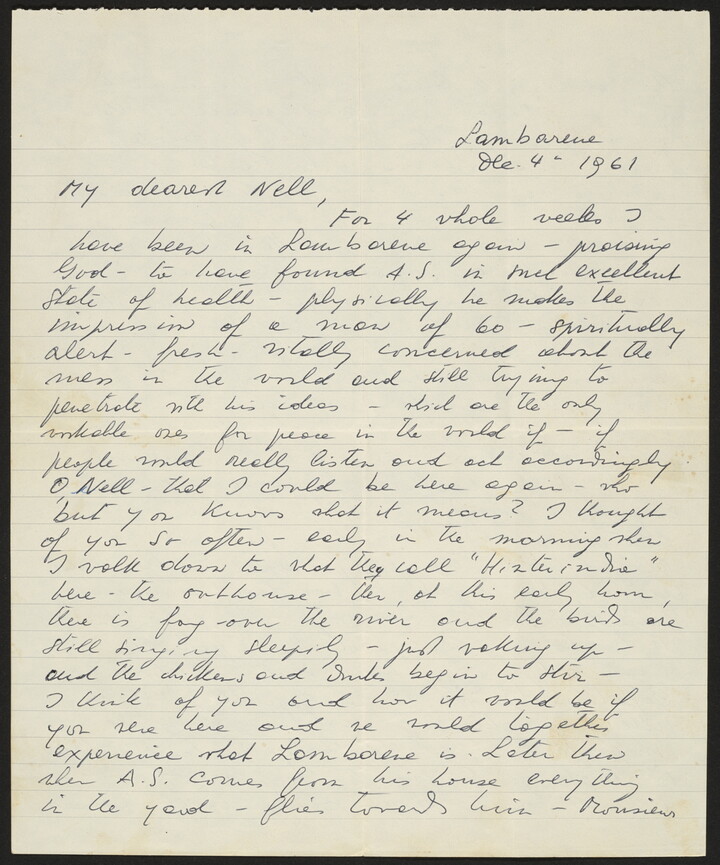 Lambarene
Dec. 4th 1961
My dearest Nell,
For 4 whole weeks I
have been in Lambarene again - praising
God - to have found A.S. in such excellent
state of health - physically he makes the
impression of a man of 60 - spiritually
alert - fresh - vitally concerned about the
mess in the world and still trying to
penetrate with his ideas - which are the only
workable ones for peace in the world if - if
people would really listen and act accordingly.
O, Nell - that I could be here again - who
but you knows what it means? I thought
of you so often - early in the morning when
I walk down to what they call "Hinterindien"
here - the outhouse - then, at this early hour,
there is fog over the river and the birds are
still singing sleepily - just waking up -
and the chickens and ducks begin to stir -
I think of you and how it would be if
you were here and we would together
experience what Lambarene is. Later then
when A.S. comes from his house everything
in the yard - flies towards him - Monsieur